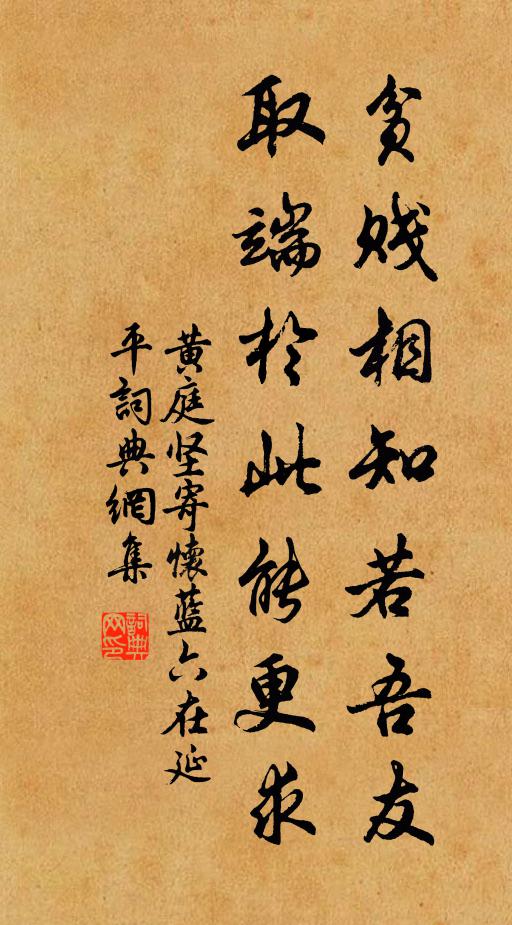 貧賤相知若吾友
取端於此能更求
黄庭坚寄懷藍六在延
平詞典網集
詞典网印